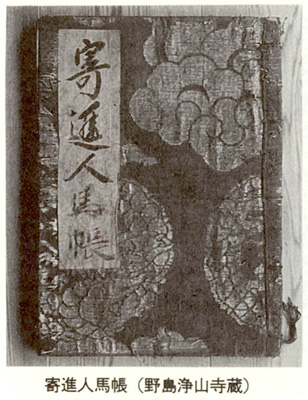 寄進人馬帳
寄進人馬帳（野島浄山寺蔵）